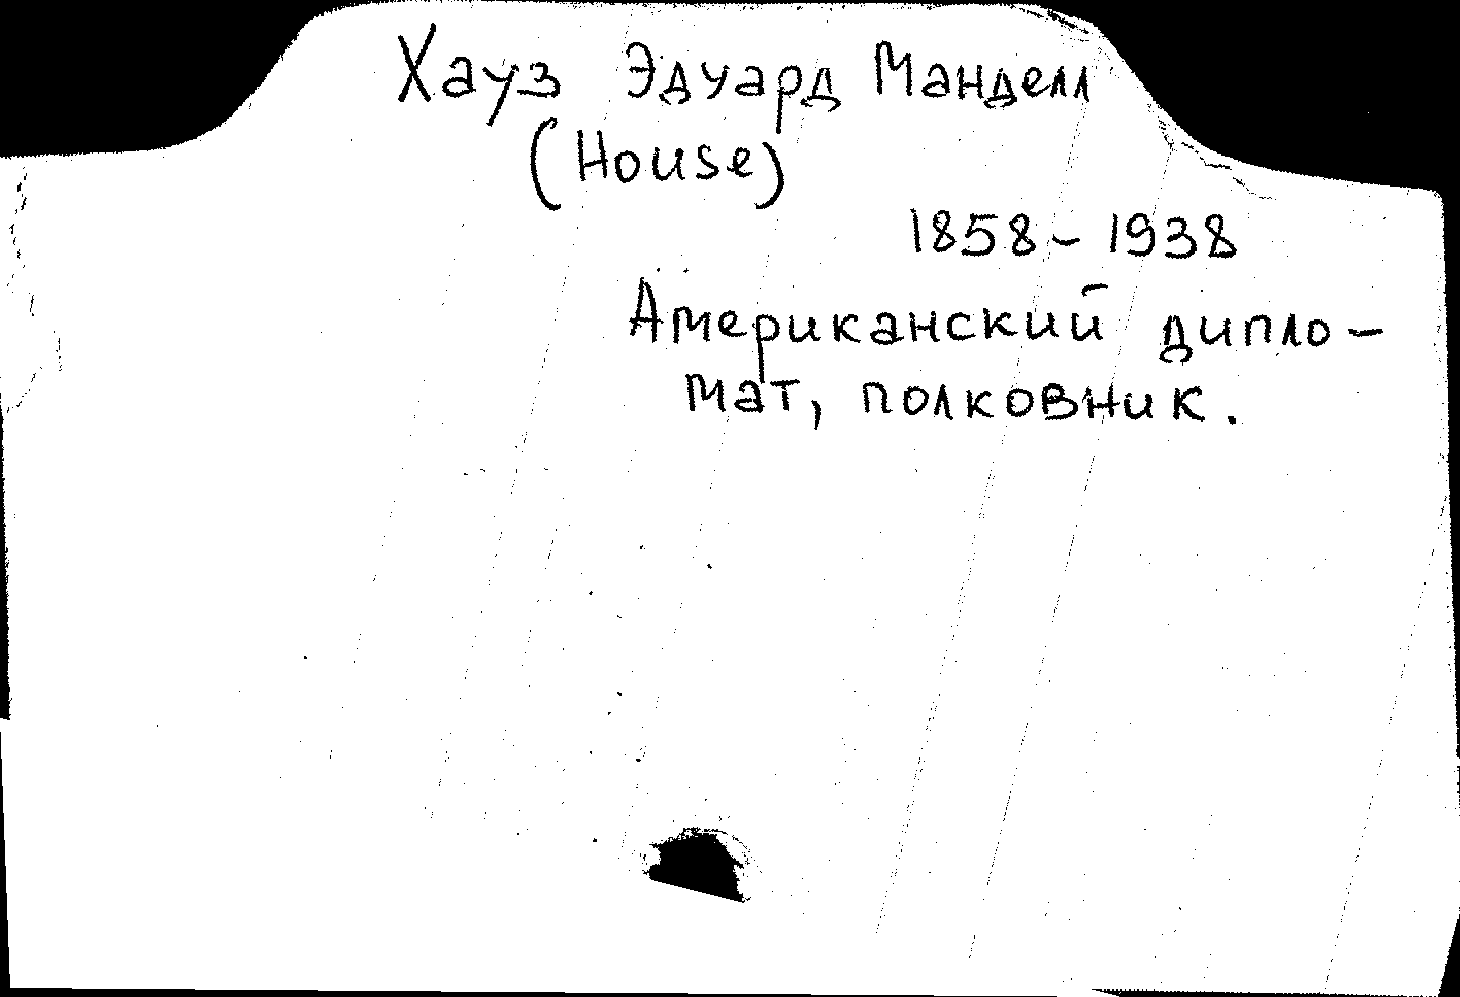 Хауз Эдуард Манделл
(House)
1858 - 1938
Американский дипло-
мат, полковник.